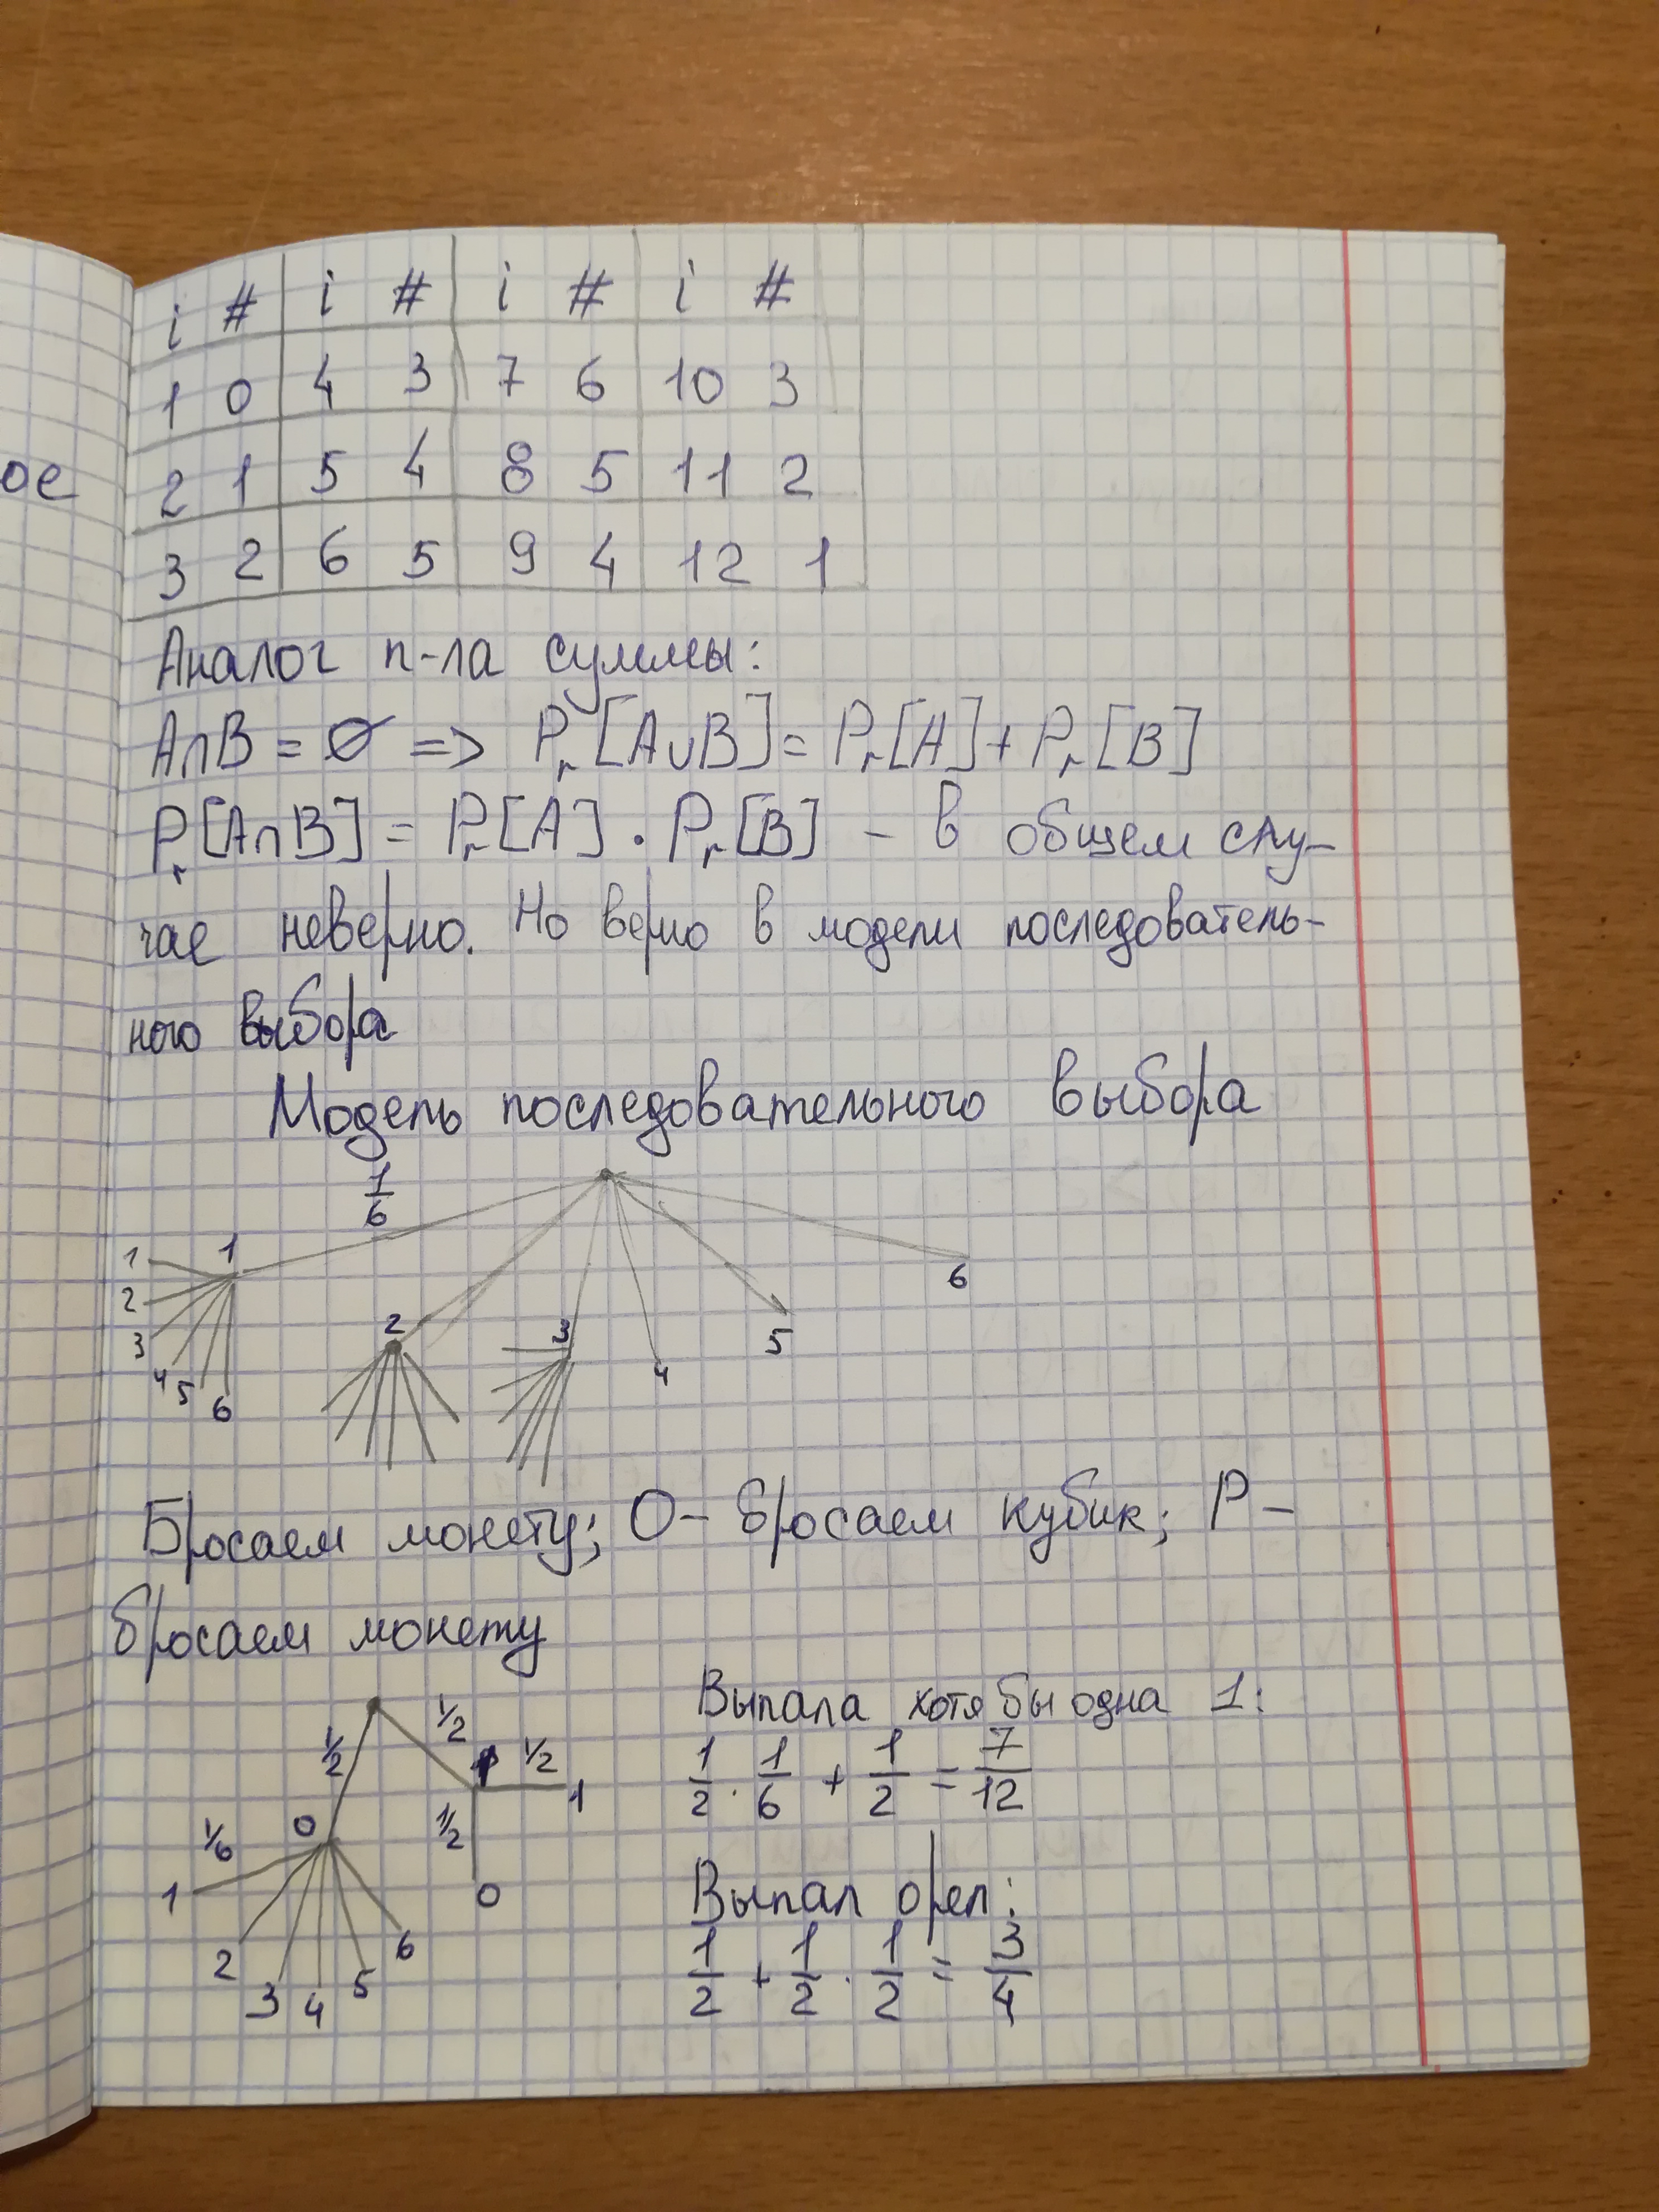 ое
i # i # i # i #
1 0 4 3 7 6 10 3
2 1 5 4 8 5 11 2
3 2 6 5 9 4 12 1
Аналог п-ла суммы:
A∩B = ∅ => Pr[A∪B] = Pr[A] + Pr[B]
Pr[A∩B] = Pr[A] · Pr[B] – в общем слу-
чае неверно. Но верно в модели последователь-
ного выбора
Модель последовательного выбора
1/6
1 1
2
3
4 5 6
2 3 4 5 6
Бросаем монету; О – бросаем кубик; Р –
бросаем монету
1/2 1/2
Р 1/2 1
1/2
О
1/6 О
1 2 3 4 5 6
Выпала хотя бы одна 1:
1/2 · 1/6 + 1/2 = 7/12
Выпал орел:
1/2 + 1/2 · 1/2 = 3/4